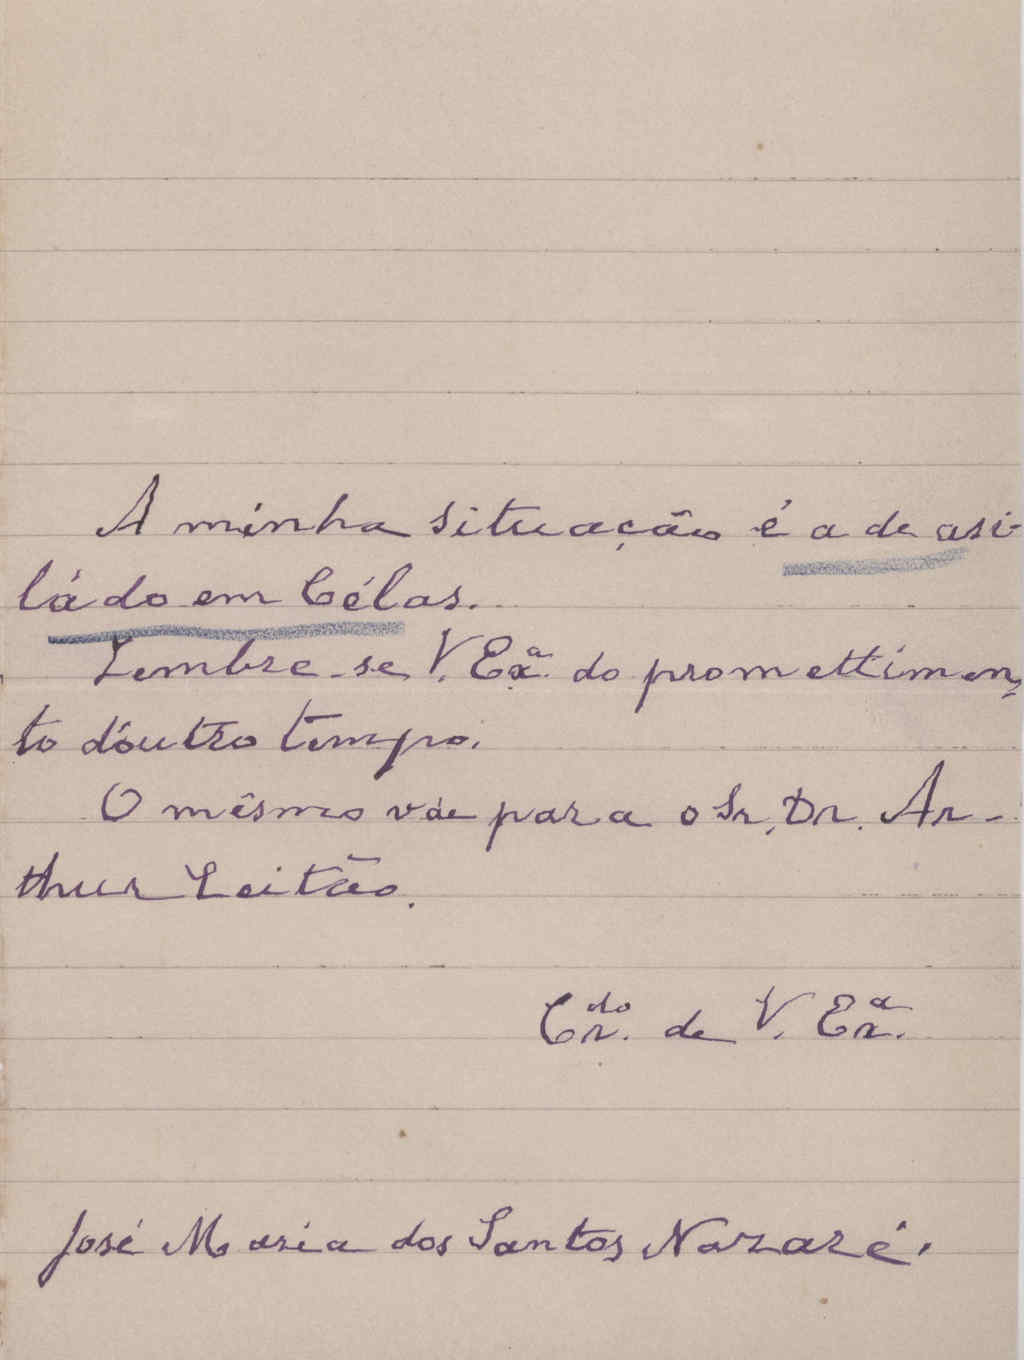 A minha situação é a de asi-
ládo em Célas.
Lembre-se V. Exª. do promettimen-
to d'outro tempo.
O mêsmo váe para o Sr. Dr. Ar-
thur Leitão.
Crdo. de V. Exª.
José Maria dos Santos Nazaré.